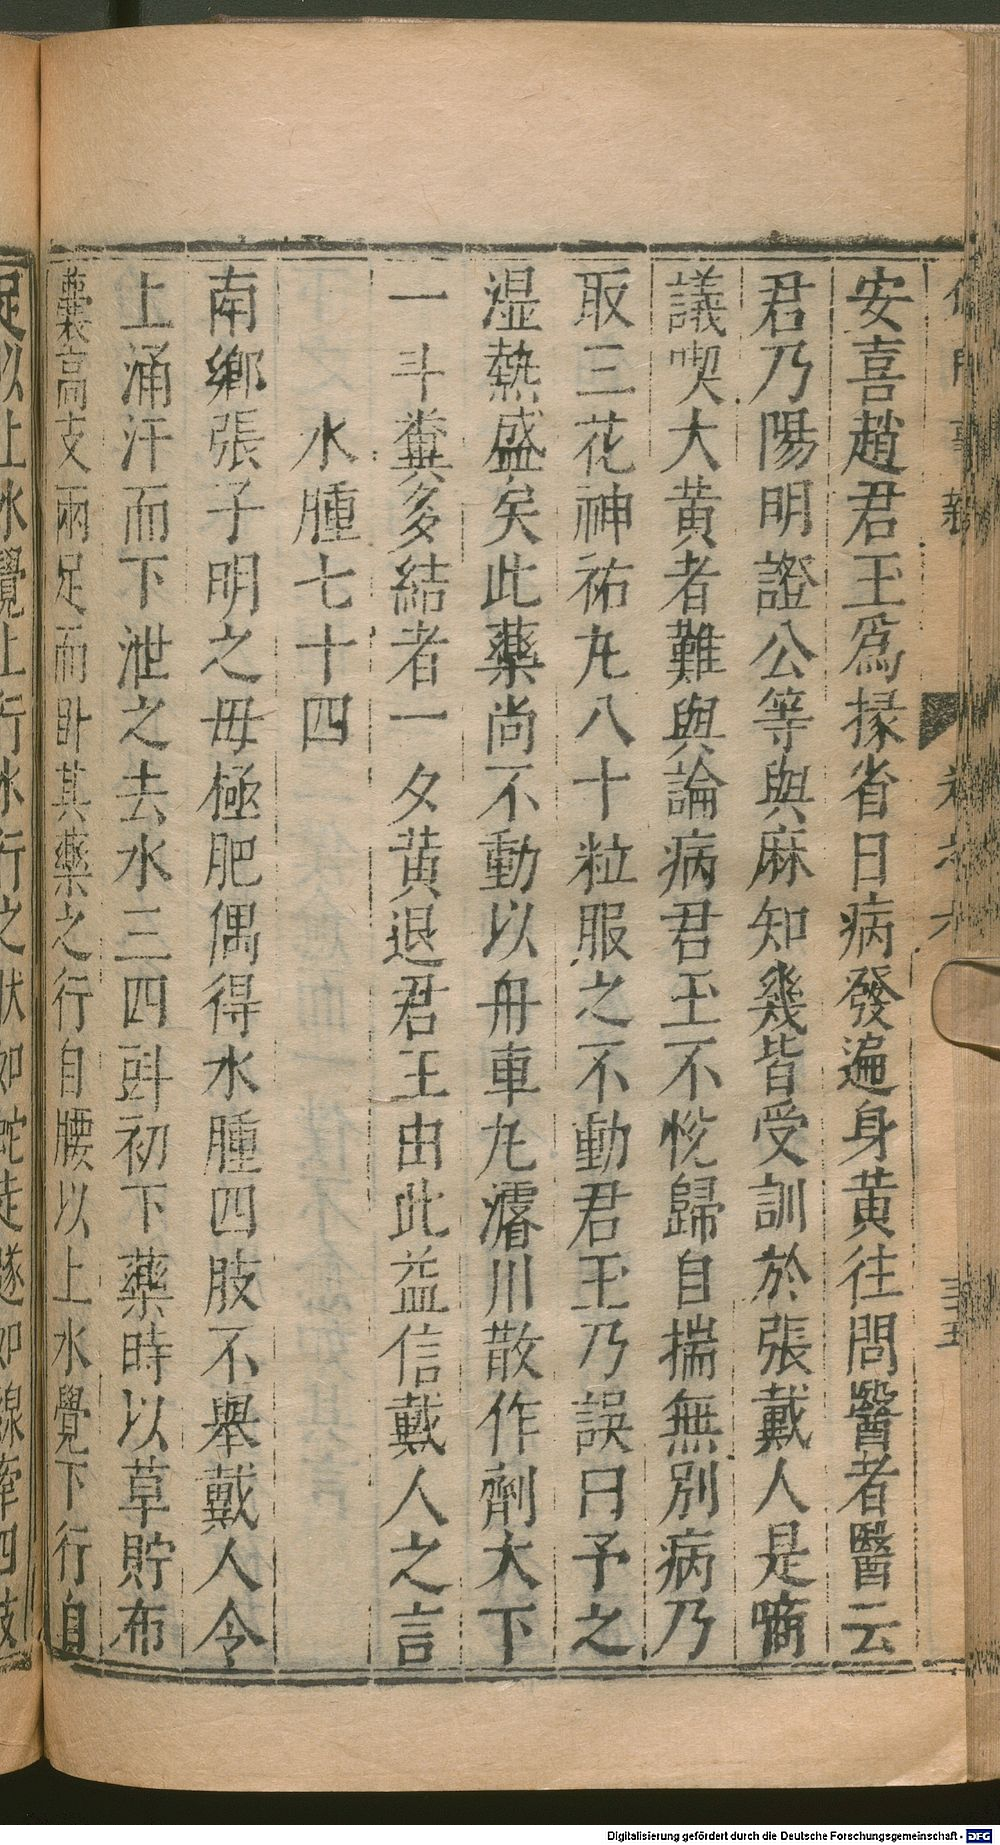 安喜趙君玉爲掾省日病發遍身黃往問醫者醫云
君乃陽明證公等與麻知幾皆受訓於張戴人是啇
議喫大黃者難與論病君玉不悅歸自揣無別病乃
取三花神祐丸八十粒服之不動君玉乃誤曰予之
湿熱盛矣此藥尚不動以舟車丸濬川散作劑大下
一斗糞多結者一夕黃退君王由此益信戴人之言
水腫七十四
南鄉張子明之毋極肥偶得水腫四肢不舉戴人令
上涌汗而下泄之去水三四㪷初下藥時以草貯布
囊高支兩足而卧其藥之行自腰以上水覺下行自
足以上水覺上行水行之狀如蛇走隧如線牽四肢
卷之六
三十五
Digitalisierung gefördert durch die Deutsche Forschungsgemeinschaft - DFG